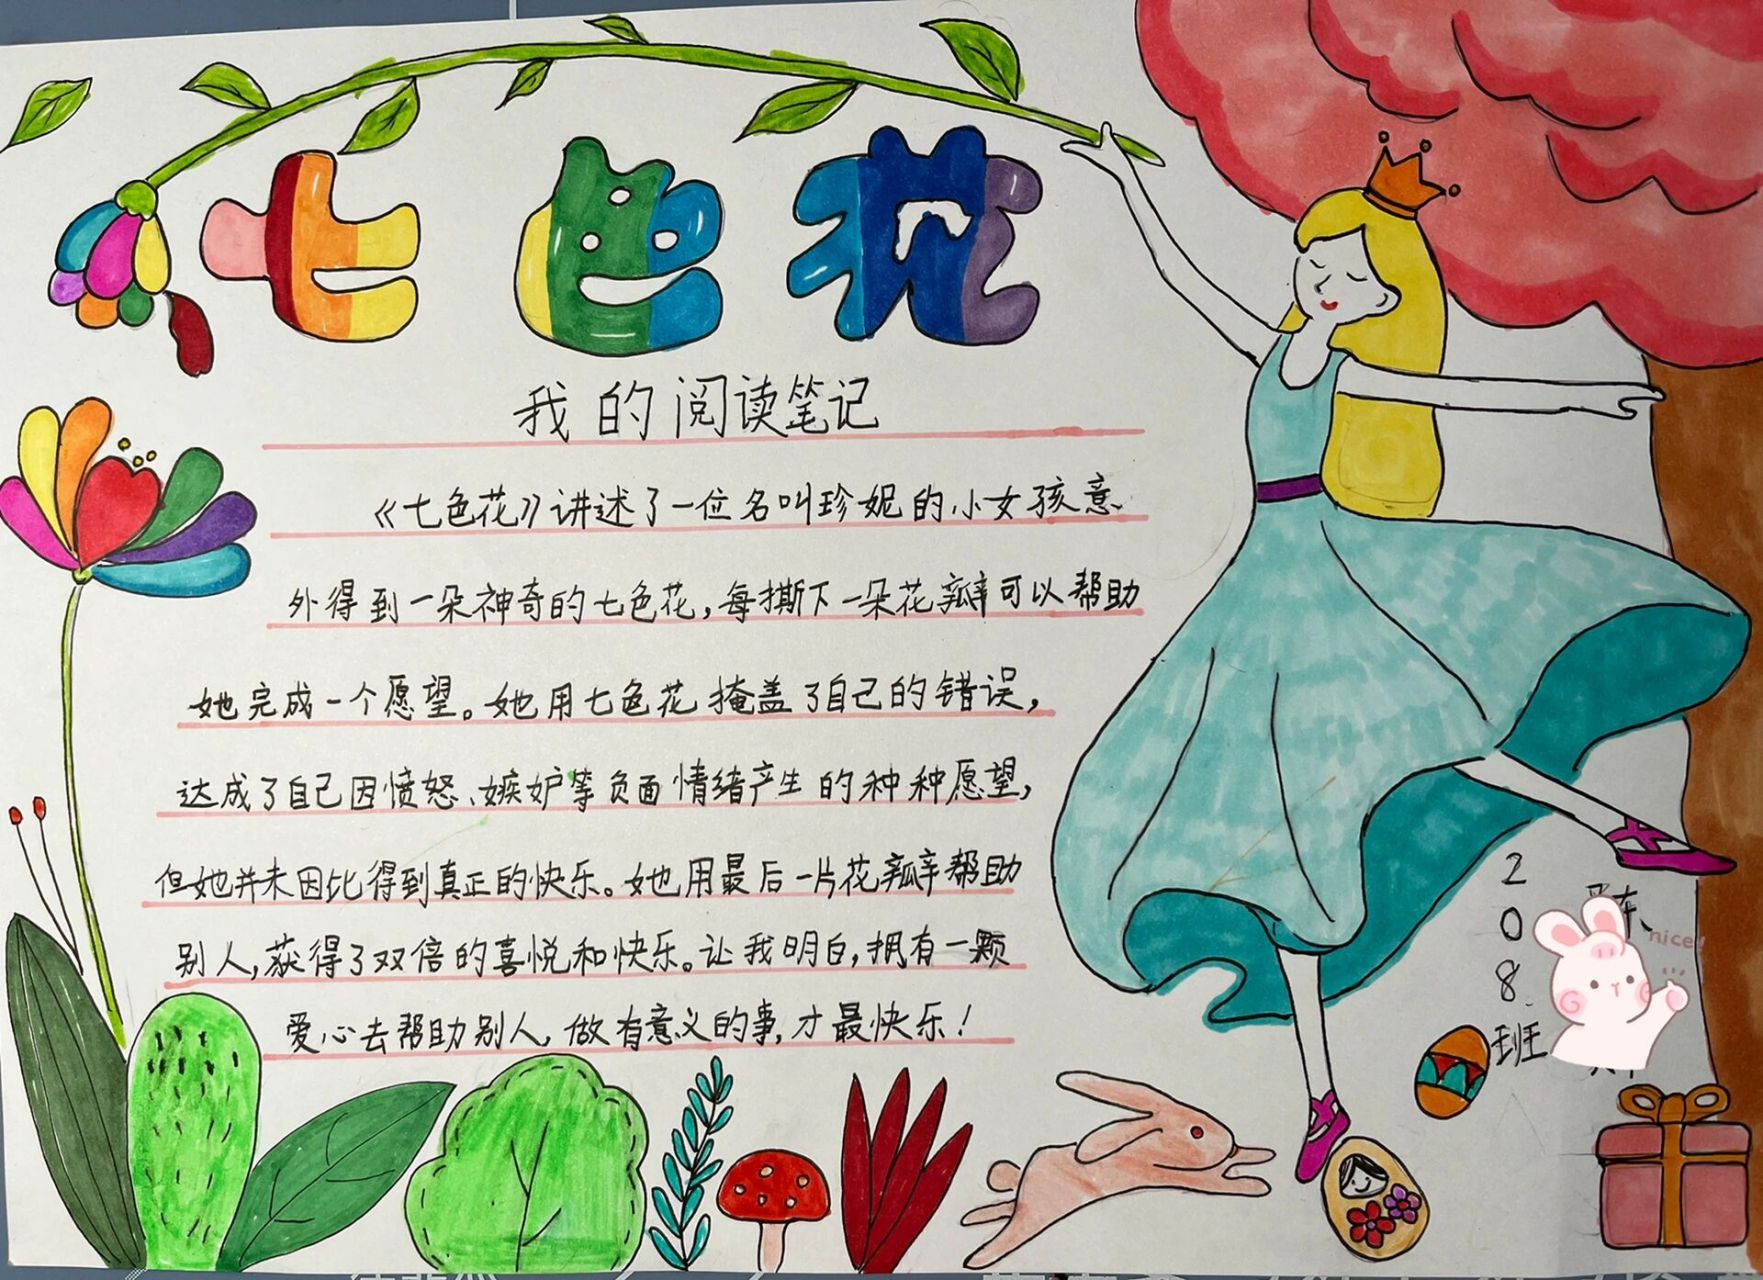 七色花
我的阅读笔记
《七色花》讲述了一位名叫珍妮的小女孩意
外得到一朵神奇的七色花,每撕下一朵花瓣可以帮助
她完成一个愿望。她用七色花掩盖了自己的错误,
达成了自己因愤怒、嫉妒等负面情绪产生的种种愿望,
但她并未因此得到真正的快乐。她用最后一片花瓣帮助
别人,获得了双倍的喜悦和快乐。让我明白,拥有一颗
爱心去帮助别人,做有意义的事,才最快乐!
208班
nice!